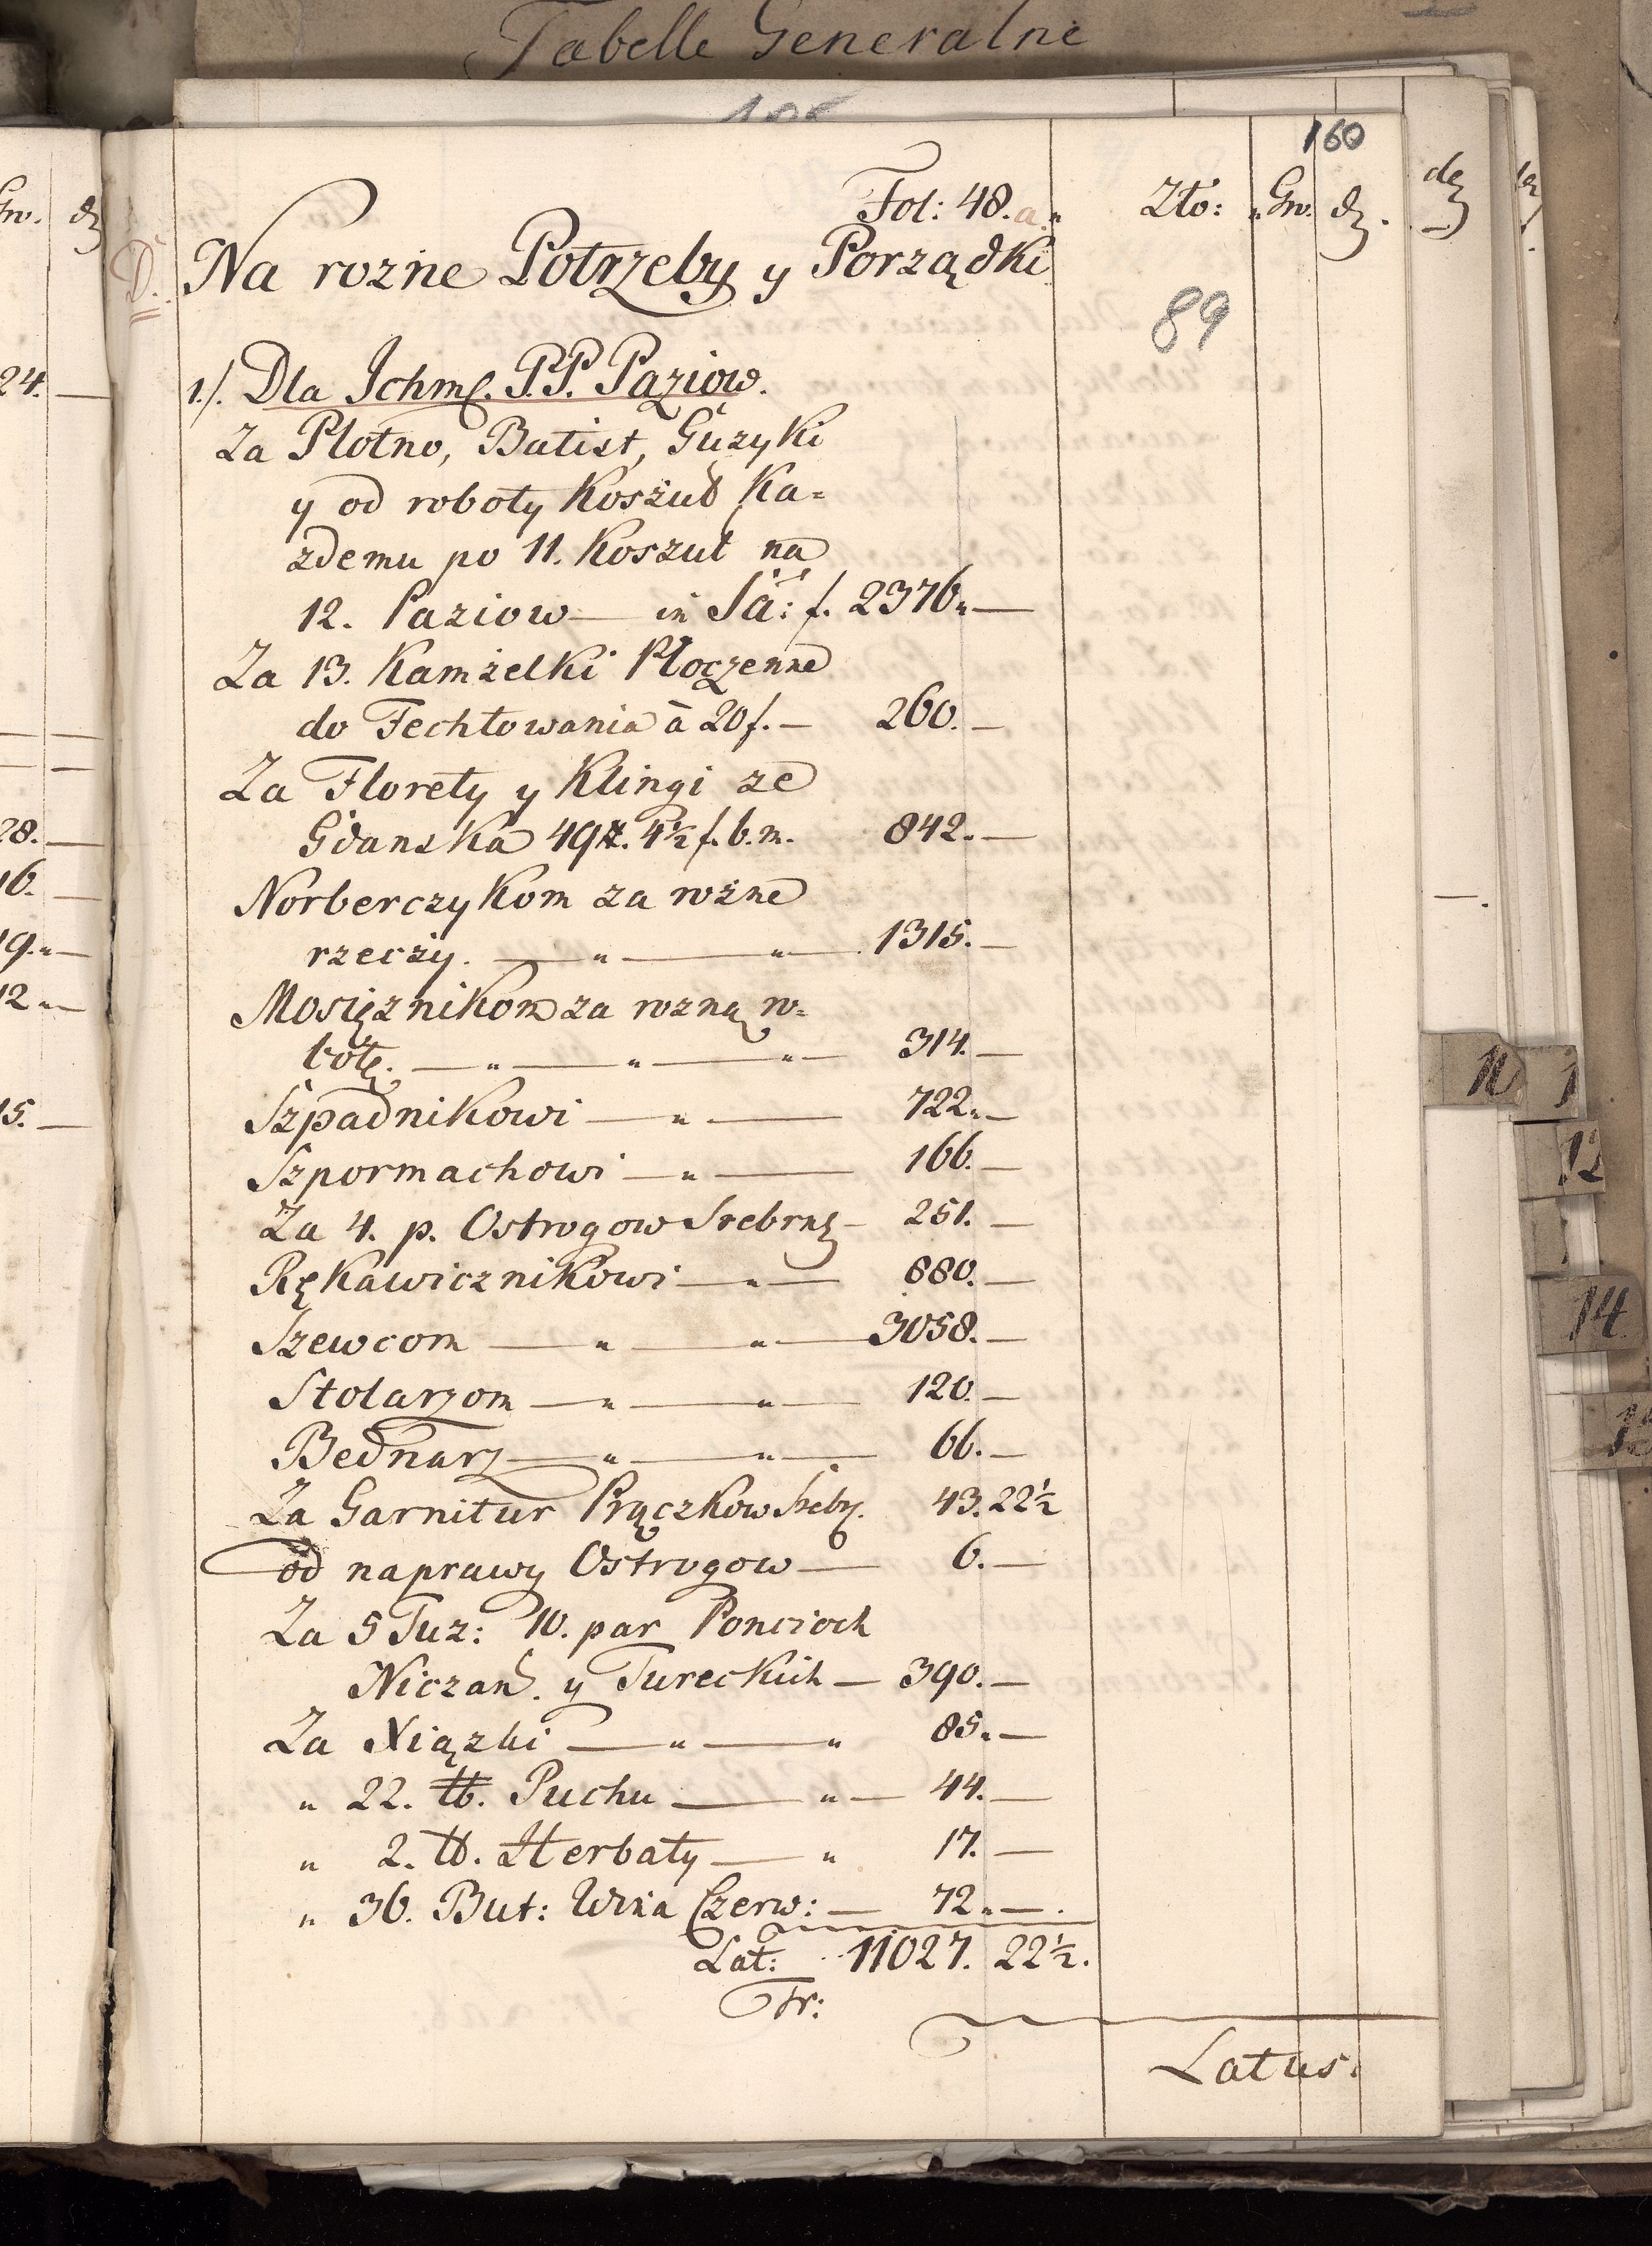 Tabelle Generalne
106
160
Fol: 48.a.„ Zło: „Gr. dz.
dz
Gr. dz
D. Na rozne Potrzeby y Porządki
89
1./. Dla Jchmę. P.P. Paziow.
24. —
Za Płotno, Batist, Guzyki
y od roboty Koszul Ka=
zdemu po 11. Koszul na
12. Paziow — in Sa: f. 2376„—
Za 13. Kamzelki Płoczenne
do Fechtowania à 20 f. — 260. —
Za Florety y Klingi ze
Gdanska 49#. 4½ f. b.m. 842. —
28. —
Norberczykom za rozne
16. —
rzeczy. — „ — „ — 1315. —
19.„—
Mosięznikom za rozną ro=
12„—
botę. — „ — „ — „ — 314. —
Szpadnikowi — „ — 722„—
15. —
Szpormachowi — „ — 166. —
Za 4. p. Ostrogow Srebrnę — 251. —
Rękawicznikowi — „ — 880. —
Szewcom — „ — „ — 3058. —
Stolarzom — „ — „ — 120. —
Bednarz — „ — „ — 66. —
Za Garnitur Prączkow Srebr. 43. 22½
od naprawy Ostrogow — 6. —
Za 5 Tuz: 10. par Ponczoch
Niczan. y Tureckich — 390. —
Za Xiązki — „ — „ 85„—
„ 22. ℔. Puchu — „ — 44. —
„ 2. ℔. Herbaty — „ 17. —
„ 36. But: Wina Czerw: — 72„—.
Lat: 11027. 22½.
Tr:
Latus.
11
1
12
14
15